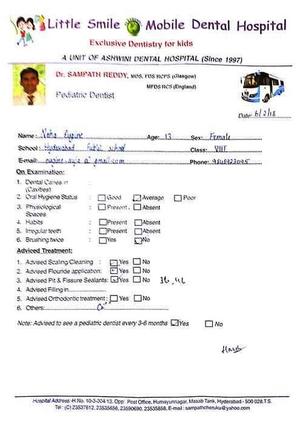 Little Smile Mobile Dental Hospital
Exclusive Dentistry for kids
A UNIT OF ASHWINI DENTAL HOSPITAL (Since 1997)
Dr. SAMPATH REDDY, MDS, FDS RCPS (Glasgow)
MFDS RCS (England)
Pediatric Dentist
Date: 6/2/18
Name: Age: 13 Sex: Female
School: Hyderabad Public School Class: VIII
E-mail: @gmail.com Phone:
On Examination:
1. Dental Caries in :
(Cavities)
2. Oral Hygiene Status : Good Average Poor
3. Physiological : Present Absent
Spaces
4. Habits : Present Absent
5. Irregular teeth : Present Absent
6. Brushing twice : Yes No
Adviced Treatment:
1. Advised Scaling Cleaning : Yes No
2. Advised Flouride application: Yes No
3. Advised Pit & Fissure Sealants: Yes No
4. Advised Filling in
5. Advised Orthodontic treatment : Yes No
6. Others:
Note: Advised to see a pediatric dentist every 3-6 months Yes No
Hospital Address: H.No. 10-3-304/13, Opp: Post Office, Humayunnagar, Masab Tank, Hyderabad - 500 028.T.S.
Tel: (C) 23537812, 23535658, 23590690, 23535858, E-mail: sampathcheruku@yahoo.com